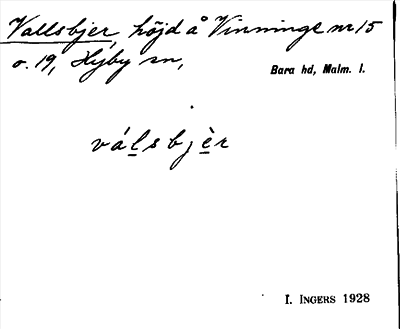 Vallsbjer, höjd å Vinninge nr 15
o. 19, Hyby sn,
Bara hd, Malm. l.
válsbjèr
I. INGERS 1928